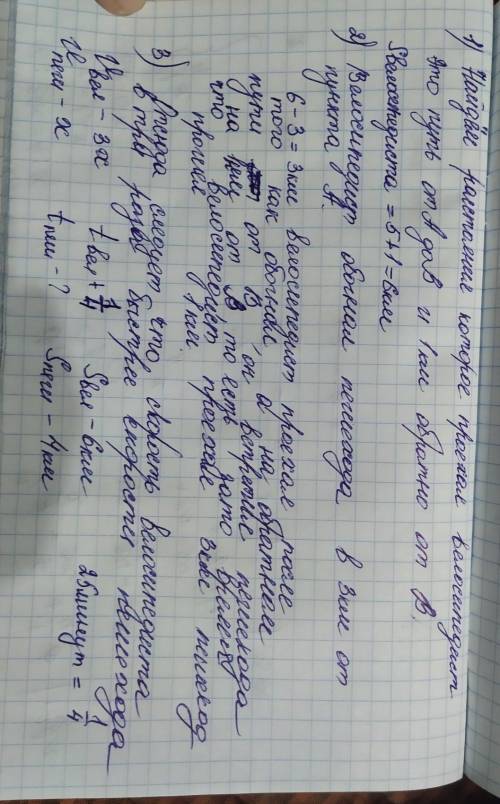 1) Найдём расстояние которое проехал велосипедист
это путь от А до В и 1 км обратно от В.
Sвелосипедиста = 5+1=6км
2) Велосипедист обогнал пешехода в 3км от
пункта А.
6-3=3км велосипедист проехал после
того как обогнал, а на обратном
пути от В, он встретил пешехода
на 1км от В, то есть зато время
что велосипедист проехал 3км пешеход
прошёл 1км.
3) Отсюда следует что скорость велосипедиста
в три раза быстрее скорости пешехода
Uвел - 3x tвел + 1/4 Sвел - 6км 25минут = 1/4
Uпеш - x tпеш - ? Sпеш - 4км